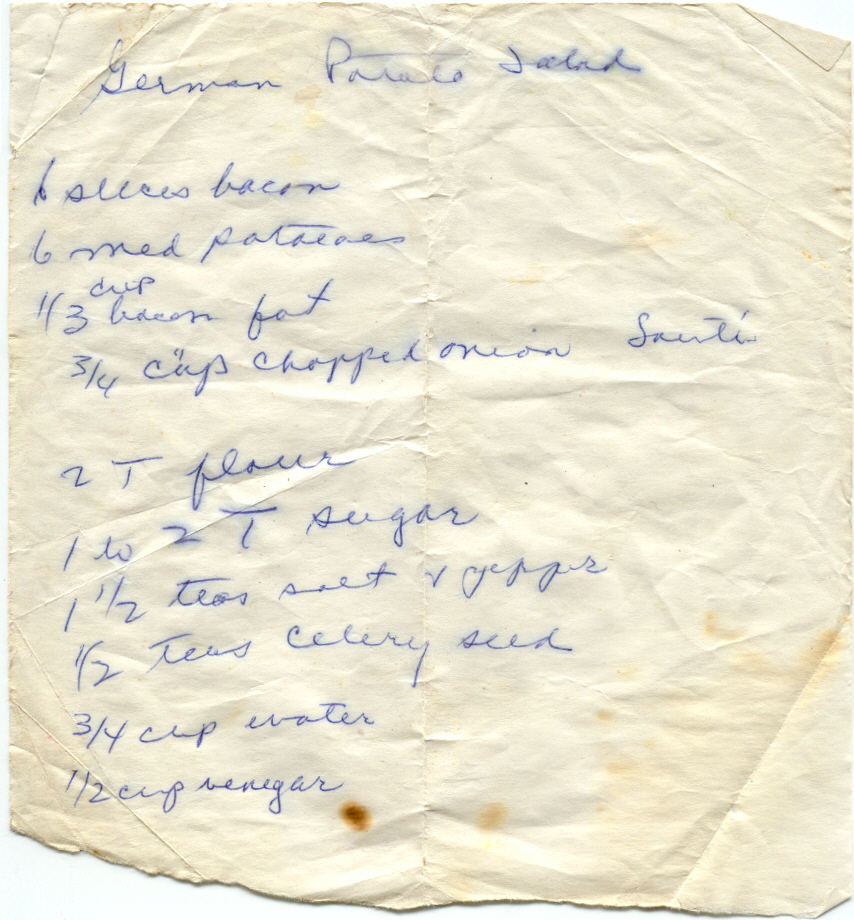 German Potato Salad
6 slices bacon
6 med potatoes
1/3 cup bacon fat
3/4 cup chopped onion Sauté
2 T flour
1 to 2 T sugar
1 1/2 teas salt & pepper
1/2 teas celery seed
3/4 cup water
1/2 cup venegar